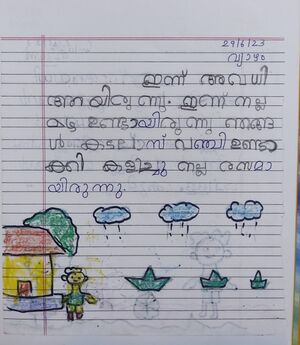 29/6/23
വ്യാഴം
ഇന്ന് അവധി
ആയിരുന്നു. ഇന്ന് നല്ല
മഴ ഉണ്ടായിരുന്നു ഞങ്ങ
ൾ കടലാസ് വഞ്ചി ഉണ്ടാ
ക്കി കളിച്ചു നല്ല രസമാ
യിരുന്നു.